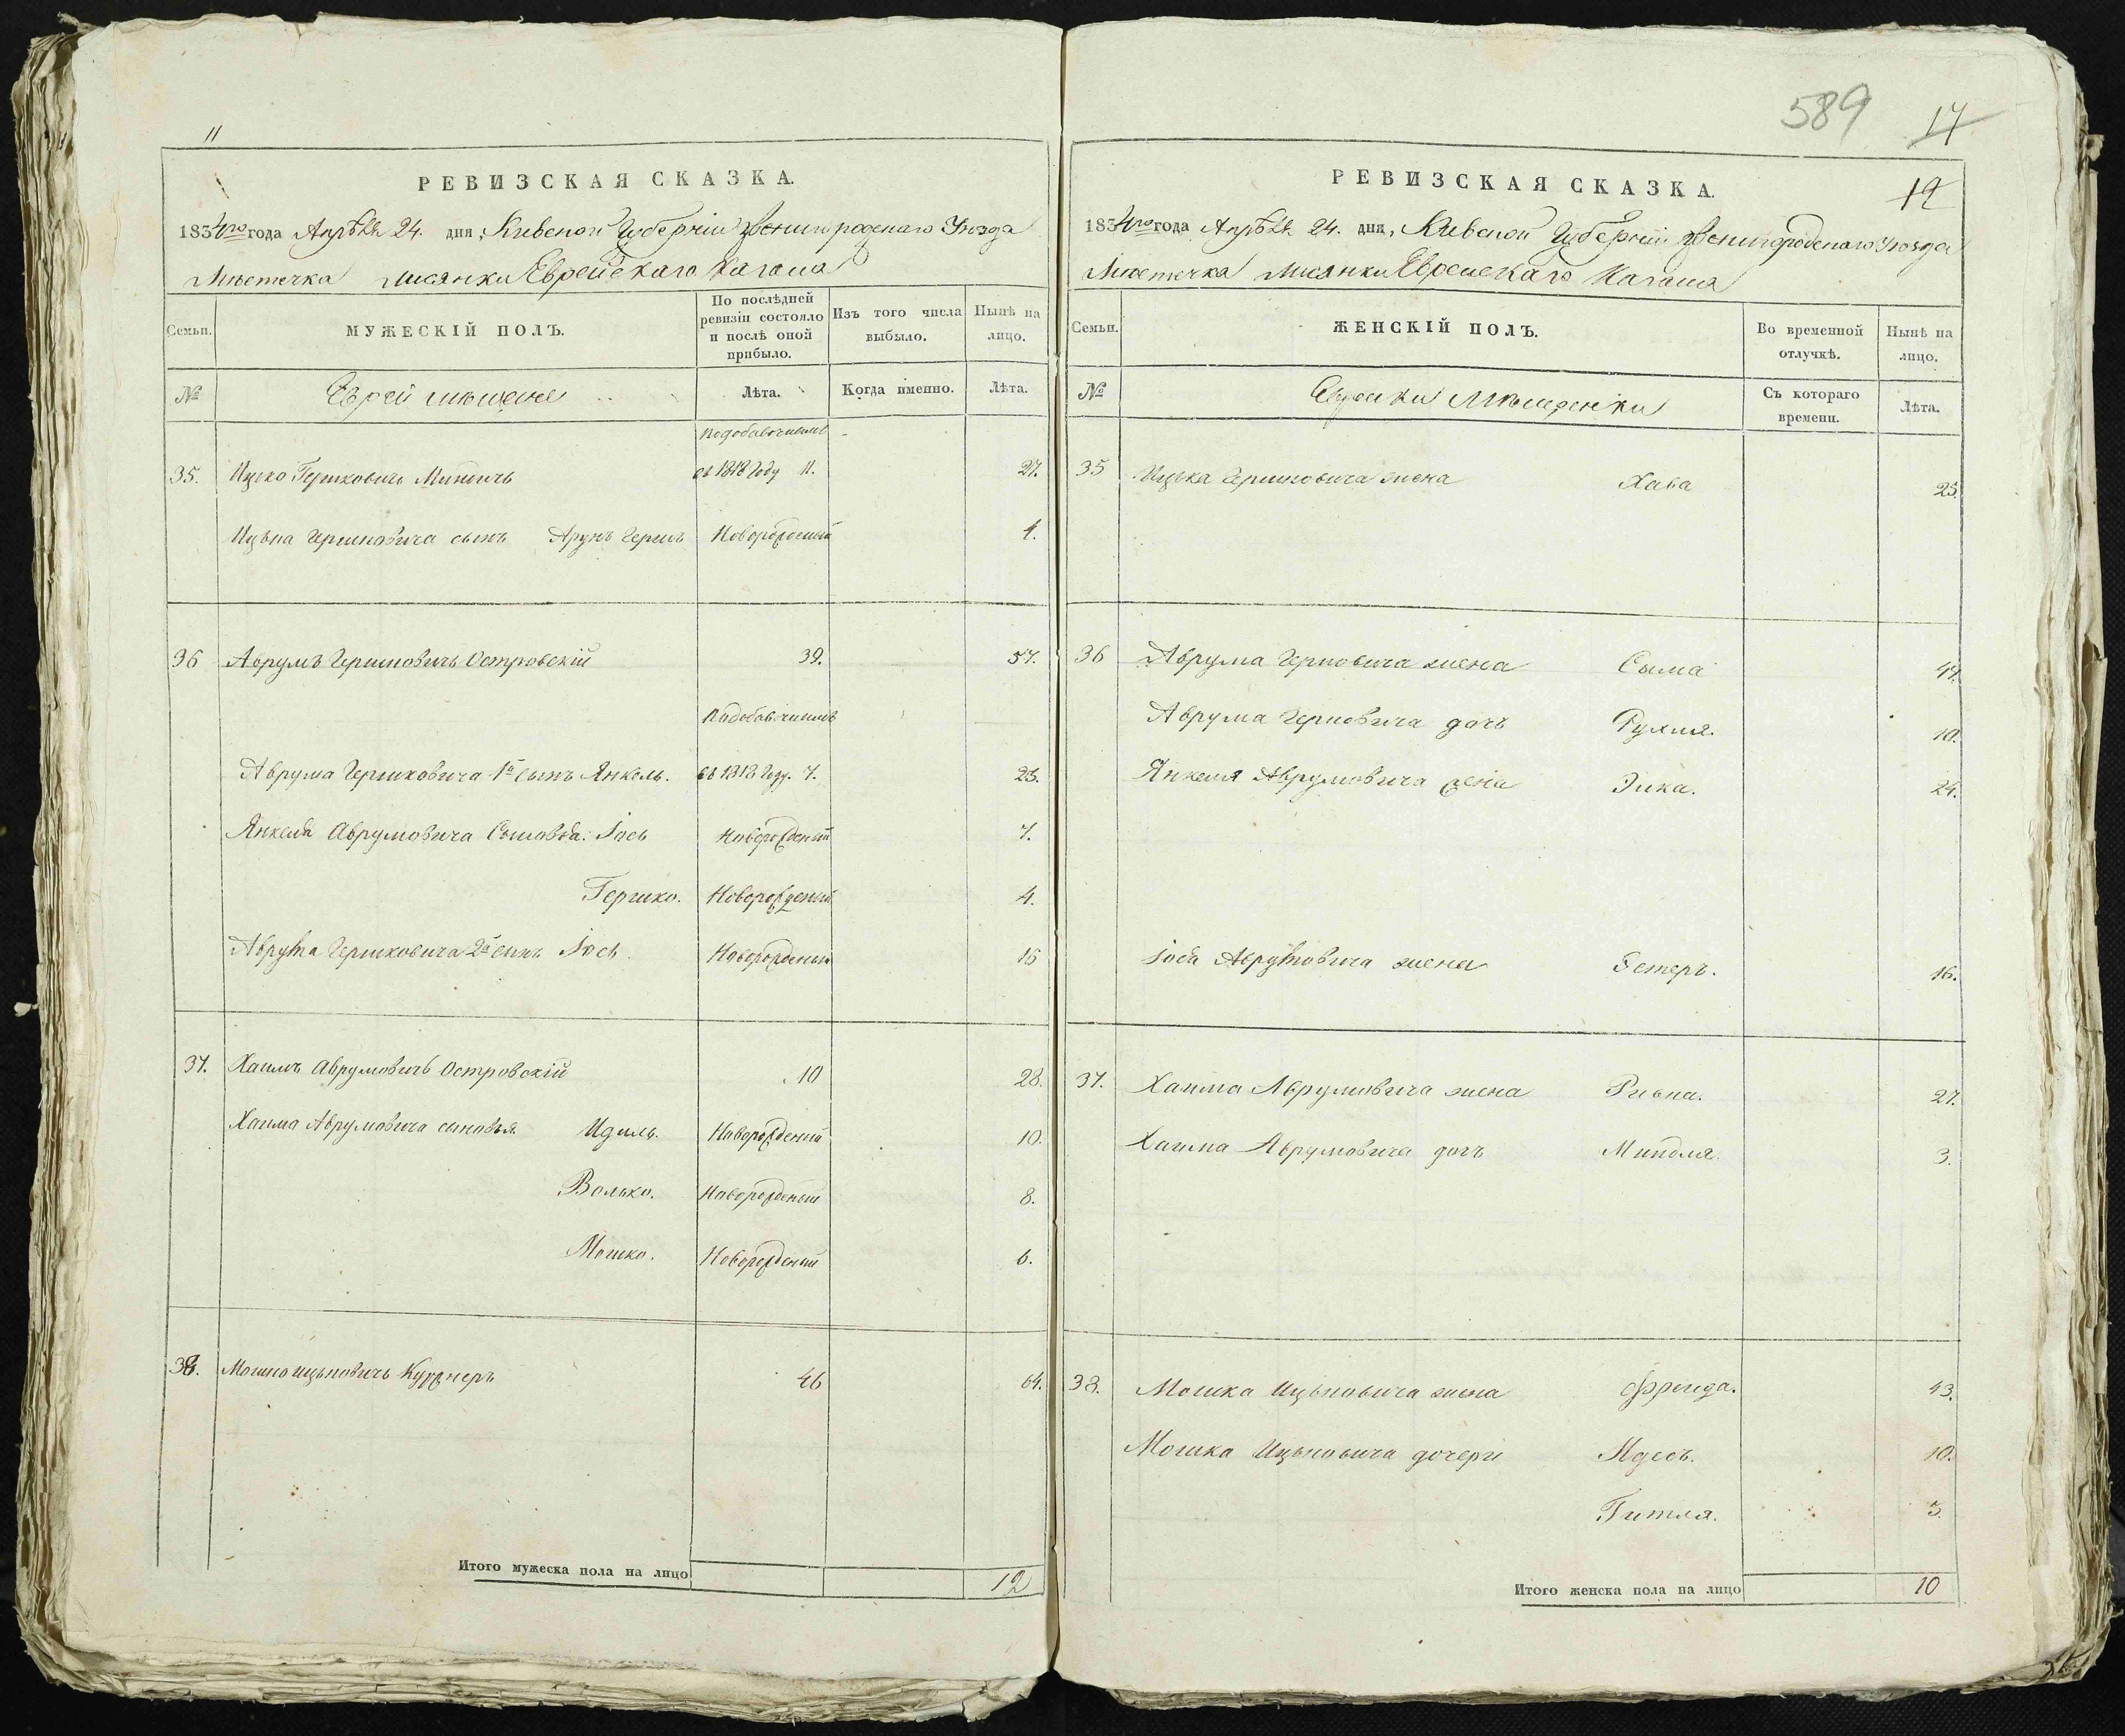 11
РЕВИЗСКАЯ СКАЗКА.
1834го года Апрѣля 24. дня, Кіевской Губерніи Звенигородскаго Уѣзда
Мѣстечка Лисянки Еврейскаго Кагала
Семьи.
МУЖЕСКІЙ ПОЛЪ.
По послѣдней ревизіи состояло и послѣ оной прибыло.
Изъ того числа выбыло.
Нынѣ на лицо.
№
Еврей мѣщане
Лѣта.
Когда именно.
Лѣта.
Подобавочнымъ
35. Ицко Гершковичъ Миндичъ въ 1818 Году 11. 27.
Ицька Гершковича сынъ Арунъ Гершъ Новорожденый 1.
36 Аврумъ Гершковичъ Островскій 39. 57.
Подобавочнымъ
Аврума Гершковича 1й сынъ Янкель. въ 1818 Году. 7. 23.
Янкеля Аврумовича Сыновья: Іось Новорожденый 7.
Гершко. Новорожденый 4.
Аврума Гершковича 2й сынъ Іось Новорожденый 15
37. Хаимъ Аврумовичъ Островскій 10 28.
Хаима Аврумовича сыновья Идиль. Новорожденый 10.
Волько. Новорожденый 8.
Мошко. Новорожденый 6.
38. Мошко Ицьковичъ 46 64.
Итого мужеска пола на лицо 12
589
17
12
РЕВИЗСКАЯ СКАЗКА.
1834го года Апрѣля 24. дня, Кіевской Губерніи Звенигородскаго Уѣзда
Мѣстечка Лисянки Еврейскаго Кагала
Семьи.
ЖЕНСКІЙ ПОЛЪ.
Во временной отлучкѣ.
Нынѣ на лицо.
№
Еврейки Мѣщанки
Съ котораго времени.
Лѣта.
35 Ицька Гершковича жена Хава 25.
36 Аврума Герковича жена Сыма 47.
Аврума Герковича дочь Рухля. 10.
Янкеля Аврумовича жена Эика. 24.
Іося Аврумовича жена Эстеръ. 16.
37. Хаима Аврумовича жена Ривка. 27.
Хаима Аврумовича дочь Миндля. 3.
38. Мошка Ицьковича жена Фрейда. 43.
Мошка Ицьковича дочери 10.
Гитля. 3.
Итого женска пола на лицо 10